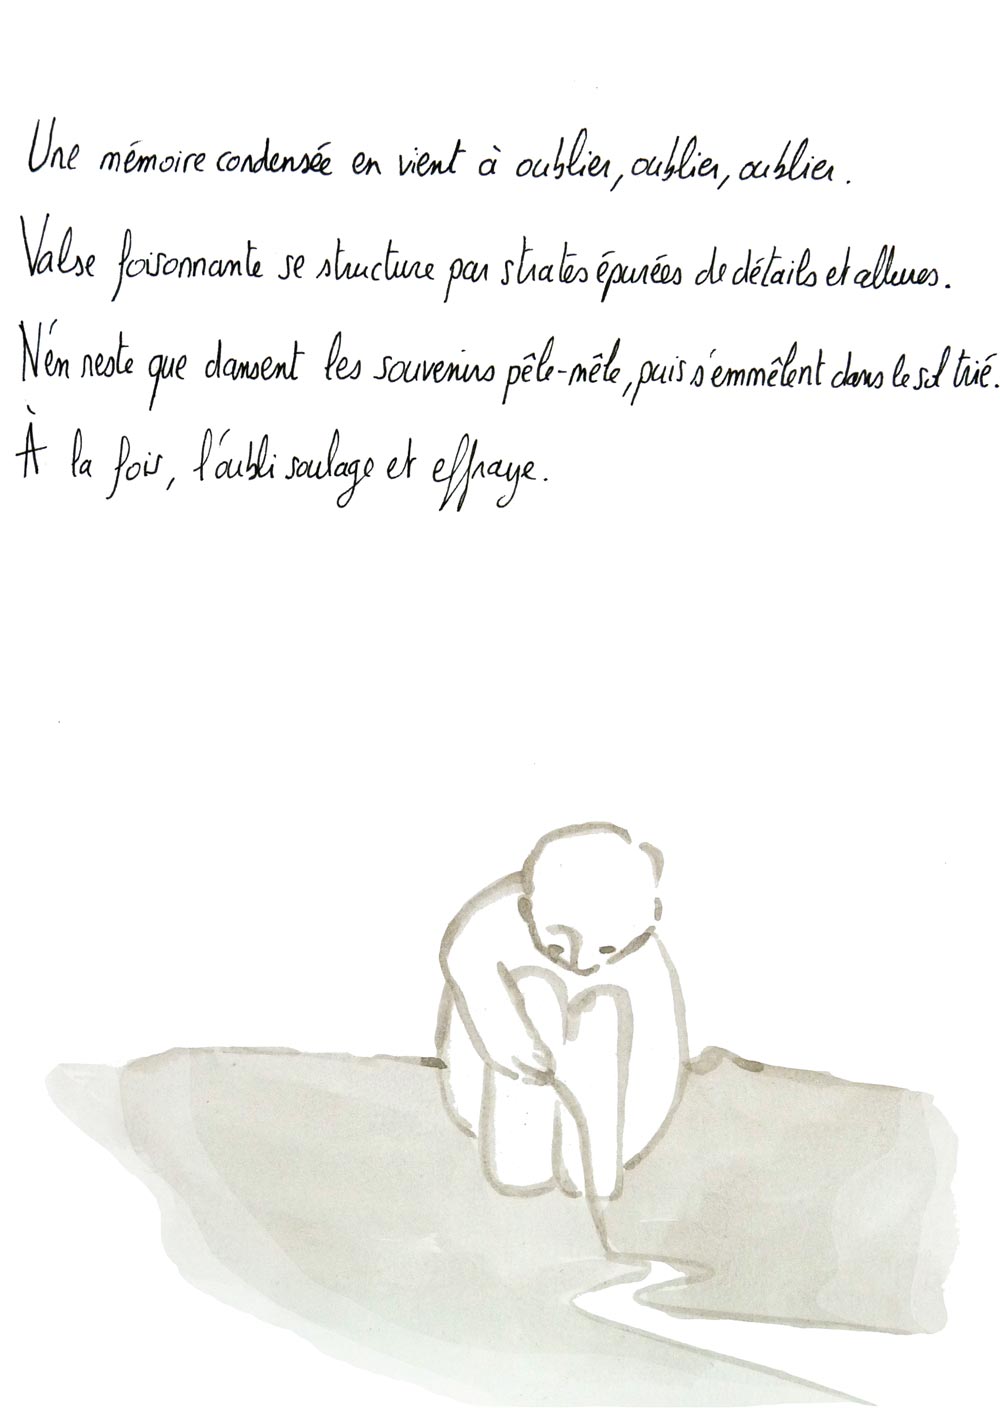 Une mémoire condensée en vient à oublier, oublier, oublier.
Valse foisonnante se structure par strates épurées de détails et allures.
N'en reste que dansent les souvenirs pêle-mêle, puis s'emmêlent dans le sol trié.
À la fois, l'oubli soulage et effraye.